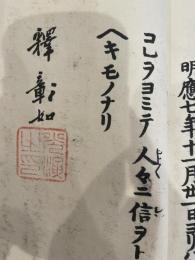 明應七年十一月廿一日
コレヲヨミテ人々ニ信ヲト
ヘキモノナリ
釋彰如